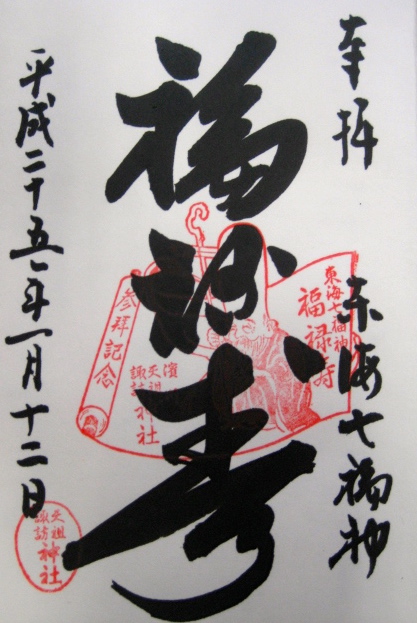 奉拝
東海七福神
福禄寿
平成二十五年一月十二日
東海七福神
福禄寿
濱川
天祖
諏訪
神社
参拝記念
天祖
諏訪
神社